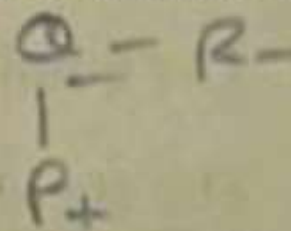 Q - R -
-
|
P+